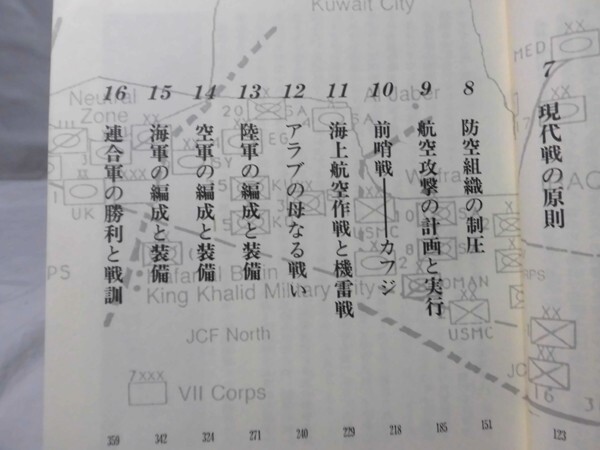 7 現代戦の原則 123
8 防空組織の制圧 151
9 航空攻撃の計画と実行 185
10 前哨戦――カフジ 218
11 海上航空作戦と機雷戦 229
12 アラブの母なる戦い 240
13 陸軍の編成と装備 271
14 空軍の編成と装備 324
15 海軍の編成と装備 342
16 連合軍の勝利と戦訓 359
Kuwait City
MED
Neutral
Zone
Jaber
UK
King Khalid Military City
USMC
USMC
JCF North
7xxx
VII Corps
16